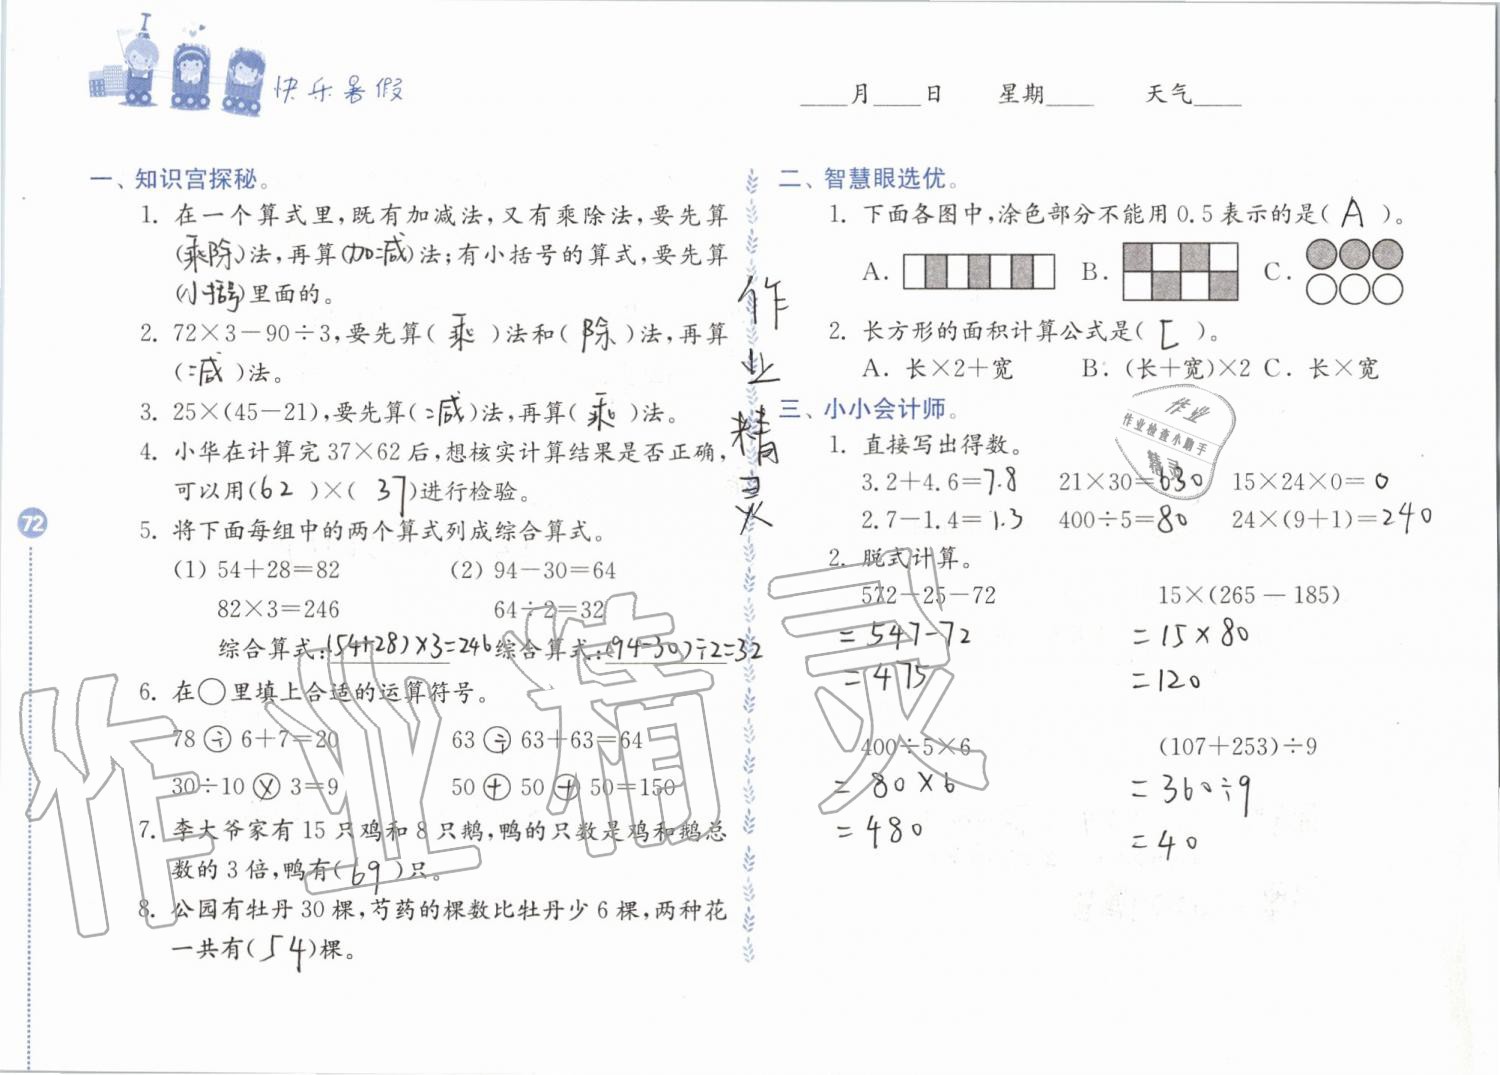 快乐暑假
____月____日 星期____ 天气____
一、知识宫探秘。
1. 在一个算式里,既有加减法,又有乘除法,要先算
(乘除)法,再算(加减)法;有小括号的算式,要先算
(小括号)里面的。
2. 72×3-90÷3,要先算( 乘 )法和( 除 )法,再算
( 减 )法。
3. 25×(45-21),要先算( 减 )法,再算( 乘 )法。
4. 小华在计算完37×62后,想核实计算结果是否正确,
可以用(62 )×( 37)进行检验。
5. 将下面每组中的两个算式列成综合算式。
(1) 54+28=82 (2) 94-30=64
82×3=246 64÷2=32
综合算式:(54+28)×3=246 综合算式:(94-30)÷2=32
6. 在○里填上合适的运算符号。
78÷6+7=20 63÷63+63=64
30÷10×3=9 50+50+50=150
7. 李大爷家有15只鸡和8只鹅,鸭的只数是鸡和鹅总
数的3倍,鸭有(69)只。
8. 公园有牡丹30棵,芍药的棵数比牡丹少6棵,两种花
一共有(54)棵。
72
作业精灵
二、智慧眼选优。
1. 下面各图中,涂色部分不能用0.5表示的是( A )。
A. B. C.
2. 长方形的面积计算公式是( C )。
A. 长×2+宽 B. (长+宽)×2 C. 长×宽
三、小小会计师。
1. 直接写出得数。
3.2+4.6=7.8 21×30=630 15×24×0=0
2.7-1.4=1.3 400÷5=80 24×(9+1)=240
2. 脱式计算。
572-25-72 15×(265-185)
=547-72 =15×80
=475 =120
400÷5×6 (107+253)÷9
=80×6 =360÷9
=480 =40
作业
作业检查小助手
精灵
作业精灵